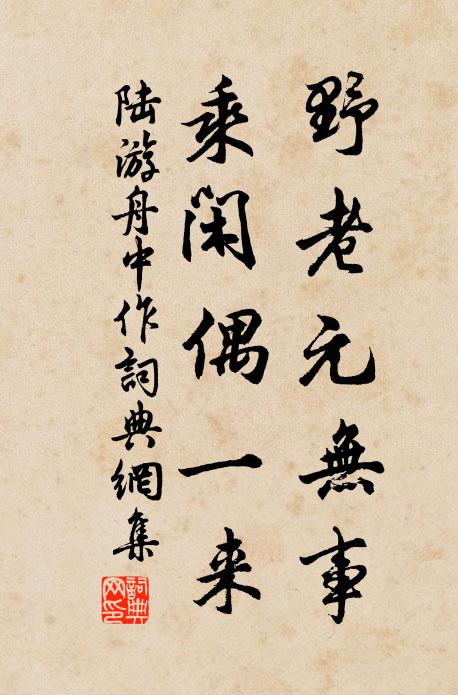 野老元無事
乘閑偶一来
陆游舟中作詞典網集
詞典網印